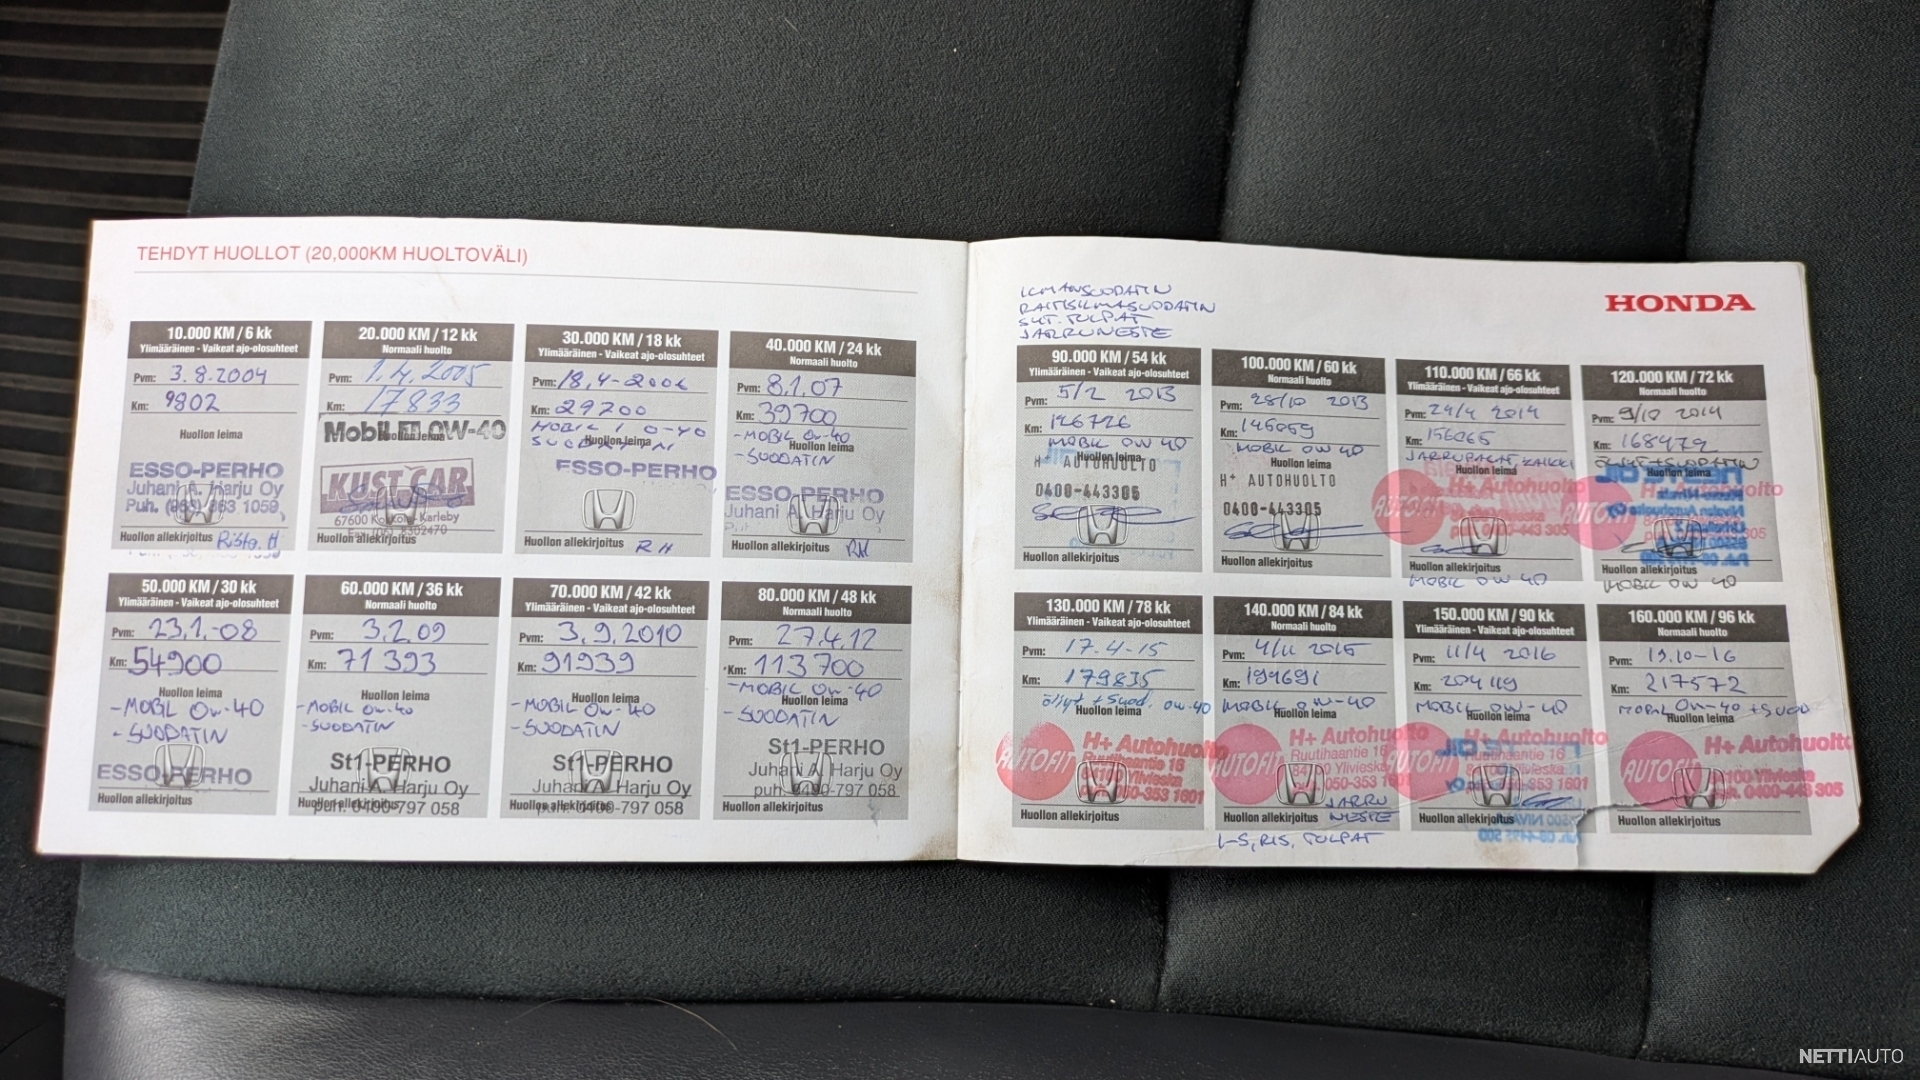 TEHDYT HUOLLOT (20,000KM HUOLTOVÄLI)
10.000 KM / 6 kk
Ylimääräinen - Vaikeat ajo-olosuhteet
Pvm: 3.8.2004
Km: 9802
Huollon leima
ESSO-PERHO
Juhani A. Harju Oy
Puh. (968) 863 1059
Huollon allekirjoitus Risto. H
20.000 KM / 12 kk
Normaali huolto
Pvm: 1.4.2005
Km: 17833
Mobil 0W-40
Huollon leima
KUST CAR
67600 Kokkola-Karleby
Huollon allekirjoitus
30.000 KM / 18 kk
Ylimääräinen - Vaikeat ajo-olosuhteet
Pvm: 18.4-2006
Km: 29700
MOBIL 1 0-40
SUODATIN
Huollon leima
ESSO-PERHO
Huollon allekirjoitus RH
40.000 KM / 24 kk
Normaali huolto
Pvm: 8.1.07
Km: 39700
-MOBIL 0W-40
Huollon leima
-SUODATIN
ESSO-PERHO
Juhani A. Harju Oy
Huollon allekirjoitus RH
50.000 KM / 30 kk
Ylimääräinen - Vaikeat ajo-olosuhteet
Pvm: 23.1.-08
Km: 54900
Huollon leima
-MOBIL 0W-40
-SUODATIN
ESSO-PERHO
Huollon allekirjoitus
60.000 KM / 36 kk
Normaali huolto
Pvm: 3.2.09
Km: 71 393
Huollon leima
-MOBIL 0W-40
-SUODATIN
St1-PERHO
Juhani A. Harju Oy
Huollon allekirjoitus
puh. 0400-797 058
70.000 KM / 42 kk
Ylimääräinen - Vaikeat ajo-olosuhteet
Pvm: 3.9.2010
Km: 91939
Huollon leima
-MOBIL 0W-40
-SUODATIN
St1-PERHO
Juhani A. Harju Oy
Huollon allekirjoitus
puh. 0400-797 058
80.000 KM / 48 kk
Normaali huolto
Pvm: 27.4.12
Km: 113700
-MOBIL 0W-40
Huollon leima
-SUODATIN
St1-PERHO
Juhani A. Harju Oy
puh. 0400-797 058
Huollon allekirjoitus
ILMANSUODATIN
RAITISILMASUODATIN
SYT. TULPAT
JARRUNESTE
HONDA
90.000 KM / 54 kk
Ylimääräinen - Vaikeat ajo-olosuhteet
Pvm: 5/2 2013
Km: 126726
MOBIL 0W 40
Huollon leima
H+ AUTOHUOLTO
0400-443305
Huollon allekirjoitus
100.000 KM / 60 kk
Normaali huolto
Pvm: 28/10 2013
Km: 145059
MOBIL 0W 40
Huollon leima
H+ AUTOHUOLTO
0400-443305
Huollon allekirjoitus
110.000 KM / 66 kk
Ylimääräinen - Vaikeat ajo-olosuhteet
Pvm: 24/4 2014
Km: 156065
JARRUPALAT KAIKKI
Huollon leima
AUTOFIT
H+ Autohuolto
0400-443 305
Huollon allekirjoitus
MOBIL 0W 40
120.000 KM / 72 kk
Normaali huolto
Pvm: 9/10 2014
Km: 168472
ÖLJYT+SUODATIN
Huollon leima
AUTOFIT
H+ Autohuolto
Huollon allekirjoitus
MOBIL 0W 40
130.000 KM / 78 kk
Ylimääräinen - Vaikeat ajo-olosuhteet
Pvm: 17.4-15
Km: 179835
öljyt + Suod. 0W-40
Huollon leima
AUTOFIT
H+ Autohuolto
Ruutihaantie 16
84100 Ylivieska
puh. 050-353 1601
Huollon allekirjoitus
140.000 KM / 84 kk
Normaali huolto
Pvm: 4/11 2015
Km: 199691
MOBIL 0W-40
Huollon leima
AUTOFIT
H+ Autohuolto
Ruutihaantie 16
84100 Ylivieska
050-353 1601
Huollon allekirjoitus
JARRU
NESTE
TULPAT
150.000 KM / 90 kk
Ylimääräinen - Vaikeat ajo-olosuhteet
Pvm: 11/4 2016
Km: 204119
MOBIL 0W-40
Huollon leima
AUTOFIT
H+ Autohuolto
Ruutihaantie 16
84100 Ylivieska
050-353 1601
Huollon allekirjoitus
160.000 KM / 96 kk
Normaali huolto
Pvm: 19.10-16
Km: 217572
MOBIL 0W-40 +SUOD
Huollon leima
AUTOFIT
H+ Autohuolto
84100 Ylivieska
puh. 0400-443 305
Huollon allekirjoitus
NETTIAUTO